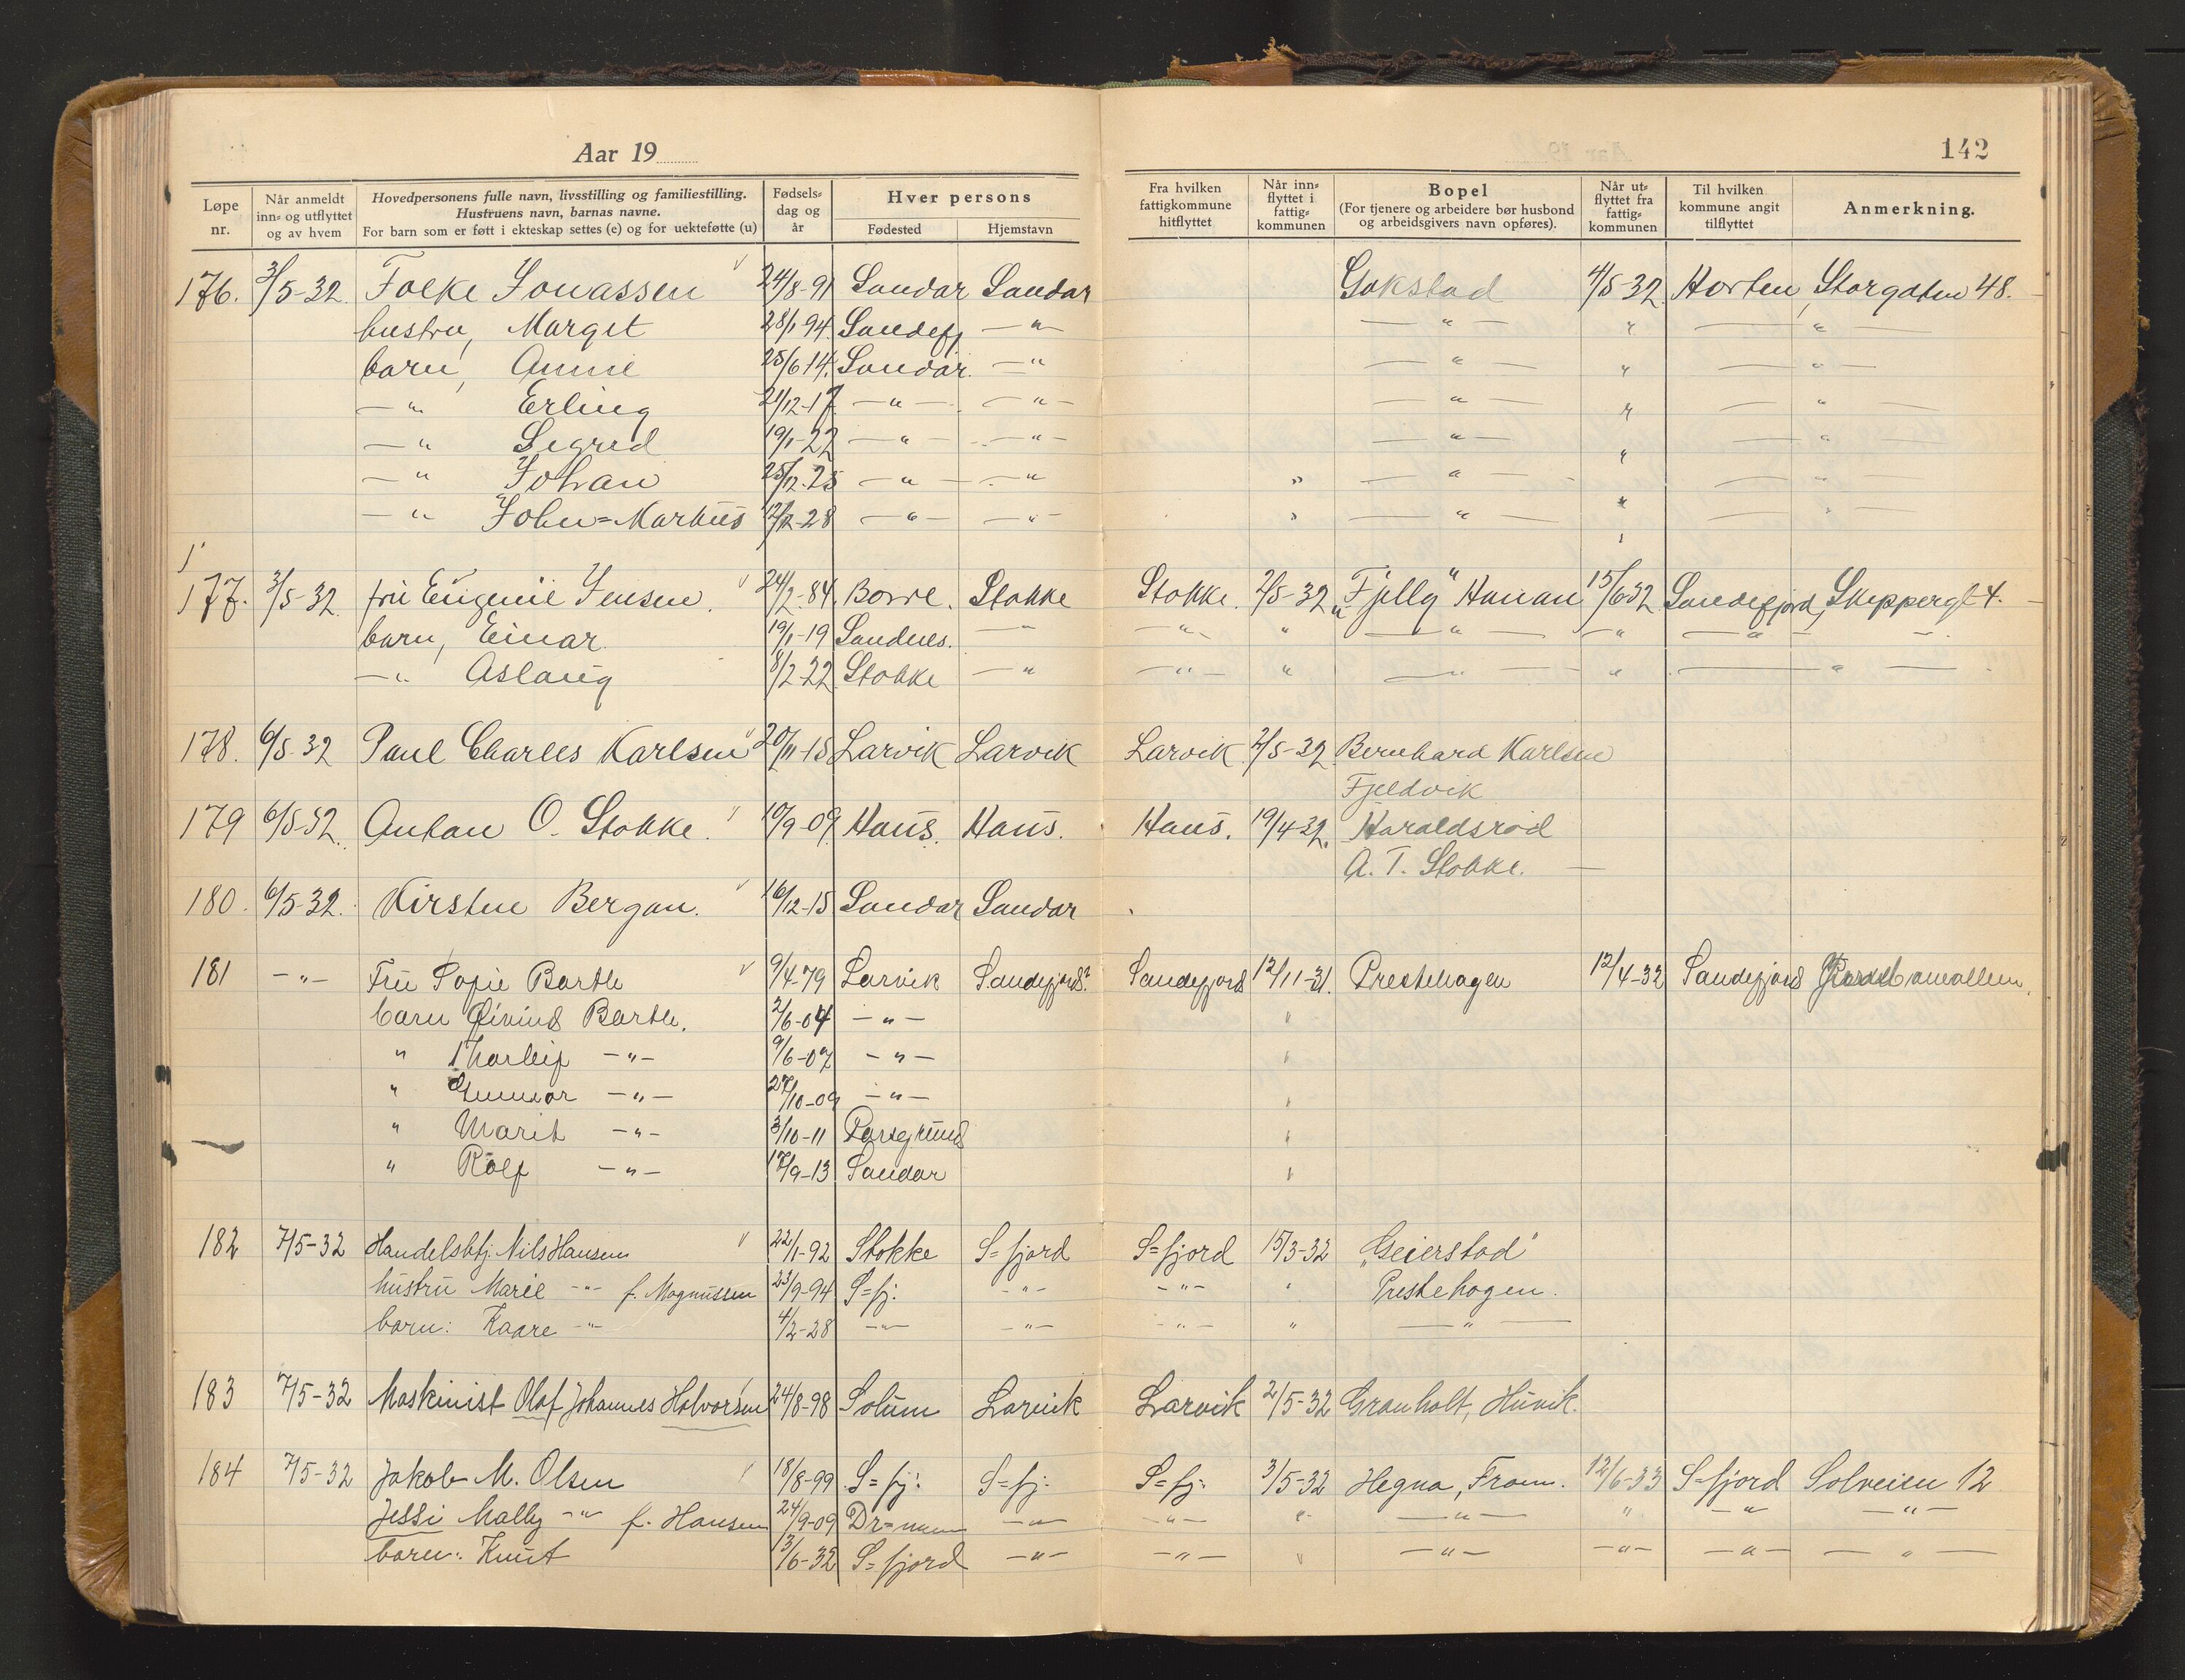 Aar 19
142
Løpe nr.
Når anmeldt inn= og utflyttet og av hvem
Hovedpersonens fulle navn, livsstilling og familiestilling.
Hustruens navn, barnas navne.
For barn som er født i ekteskap settes (e) og for uekteføtte (u)
Fødsels= dag og år
Hver persons
Fødested
Hjemstavn
Fra hvilken fattigkommune hitflyttet
Når inn= flyttet i fattig= kommunen
Bopel
(For tjenere og arbeidere bør husbond og arbeidsgivers navn opføres).
Når ut= flyttet fra fattig= kommunen
Til hvilken kommune angit tilflyttet
Anmerkning.
176. 3/5-32. Folke Jonassen 24/8-91 Sandar Sandar Gokstad 4/5-32 Horten, Storgaten 48.
hustru, Margit 28/1 94. Sandefj —"— —"— " —"—
barn, Annie 25/6 14. Sandar. —" —"— " —"—
—" Erling 21/12-17 —"— —"— —"— " —"—
—" Sigrid 19/1-22 —"— —"— —"— " —"—
—" Johan 25/12.25 —"— —" " —"— " —"—
—" John=Markus 12/2-28 —"— —"— " —"— " —"—
177. 3/5-32. fru Eugenie Jensen. 24/2-84. Borre. Stokke Stokke. 2/5-32 "Fjelly" Hauan 15/6 32 Sandefjord, Skippergt 4.
barn, Einar. 19/1-19 Sandnes. —"— —"— " —"— —"— —"—
—" Aslaug 8/2-22. Stokke —" —"— " —"— " —"—
178. 6/5-32 Paul Charles Karlsen 20/11-15 Larvik Larvik Larvik 2/5-32. Bernhard Karlsen
Fjeldvik
179 6/5-32. Anton O. Stokke. 10/9-09. Haus. Haus. Haus. 19/4-32. Haraldsrød
A. T. Stokke. —
180. 6/5-32. Kirsten Bergan. 16/12-15 Sandar Sandar
181 —"— Fru Sofie Barth 9/4-79 Larvik Sandefjord? Sandefjord 12/11-31. Prestehagen 12/4-32 Sandefjord
barn Øivind Barth. 2/6-04 —"— "
" Thorleif —"— 9/6-07 —"— "
" Gunnar —"— 27/10-09 —"— "
" Marit —"— 3/10-11 Porsgrund "
" Rolf —"— 17/9-13 Sandar "
182 7/5-32 Handelsbtj. Nils Hansen 22/1-92 Stokke S=fjord S=fjord 15/3-32 "Geierstad"
hustru Marie —"— f. Magnussen 23/9-94 S=fj: —"— —"— " Prestehagen.
barn: Kaare —"— 4/2-28 —"— —"— —"— " —"—
183 7/5-32 Maskinist Olaf Johannes Halvorsen 24/8-98 Solum Larvik Larvik 2/5-32 Granholt, Huvik.
184 7/5-32 Jakob M. Olsen 18/8-99 S=fj: S=fj. S=fj. 3/5-32 Hegna, Fram. 12/6-33 S=fjord Solveien 12
Jessi Mally —"— f. Hansen 24/9-09 Dr=men —"— —"— " —"— " —"— —"—
barn: Knut 13/6-32 S=fjord —"— —"— " —"— —"— —"— —"—